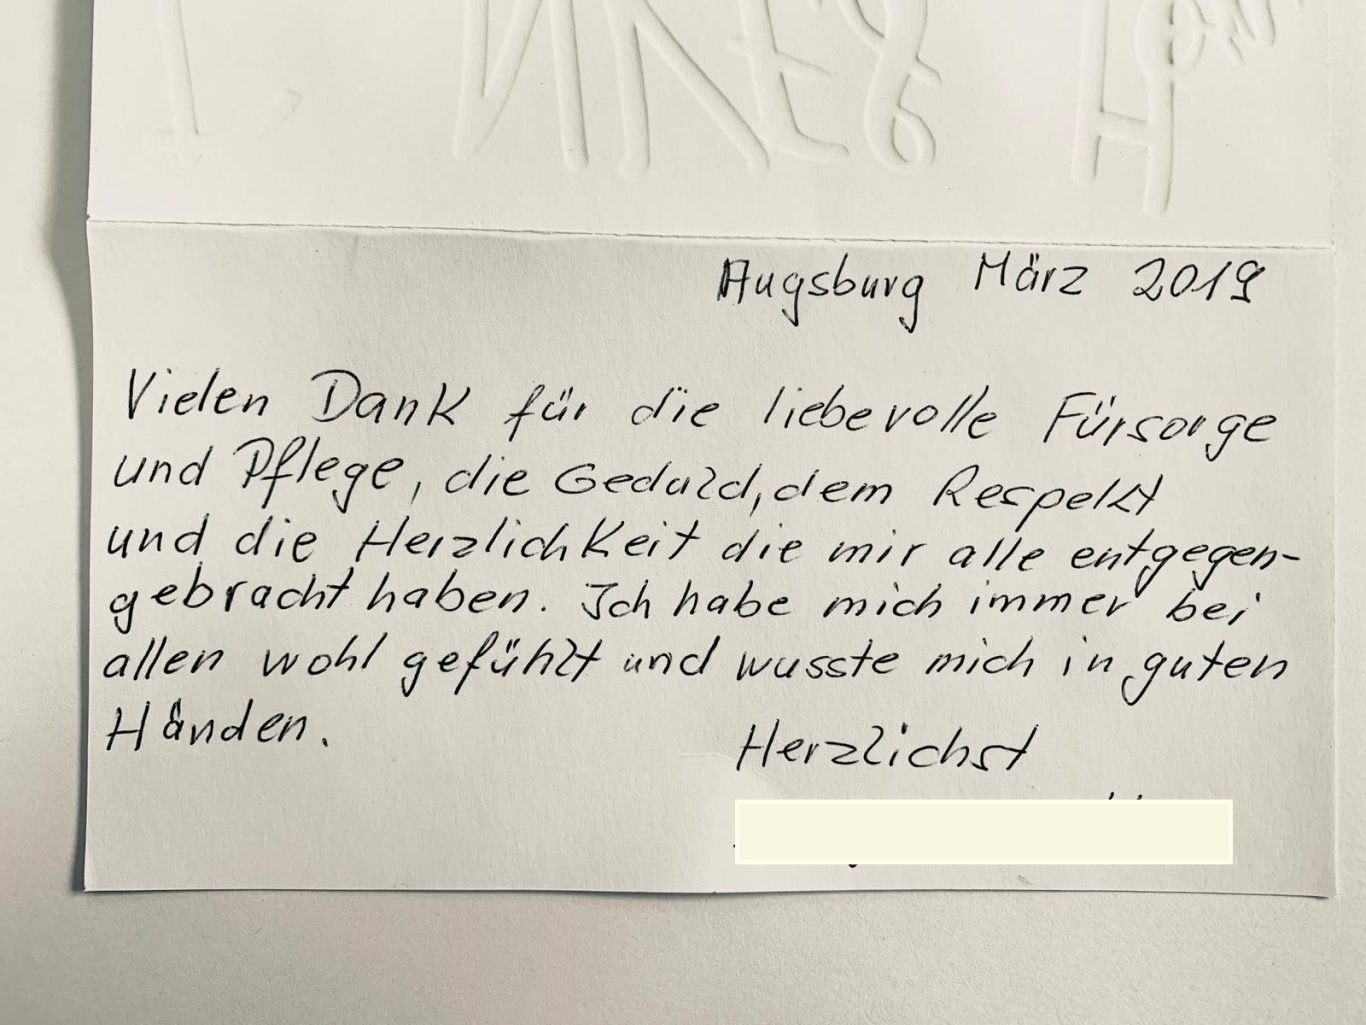 Augsburg März 2019
Vielen Dank für die liebevolle Fürsorge
und Pflege, die Geduld, dem Respekt
und die Herzlichkeit die mir alle entgegen-
gebracht haben. Ich habe mich immer bei
allen wohl gefühlt und wusste mich in guten
Händen.
Herzlichst